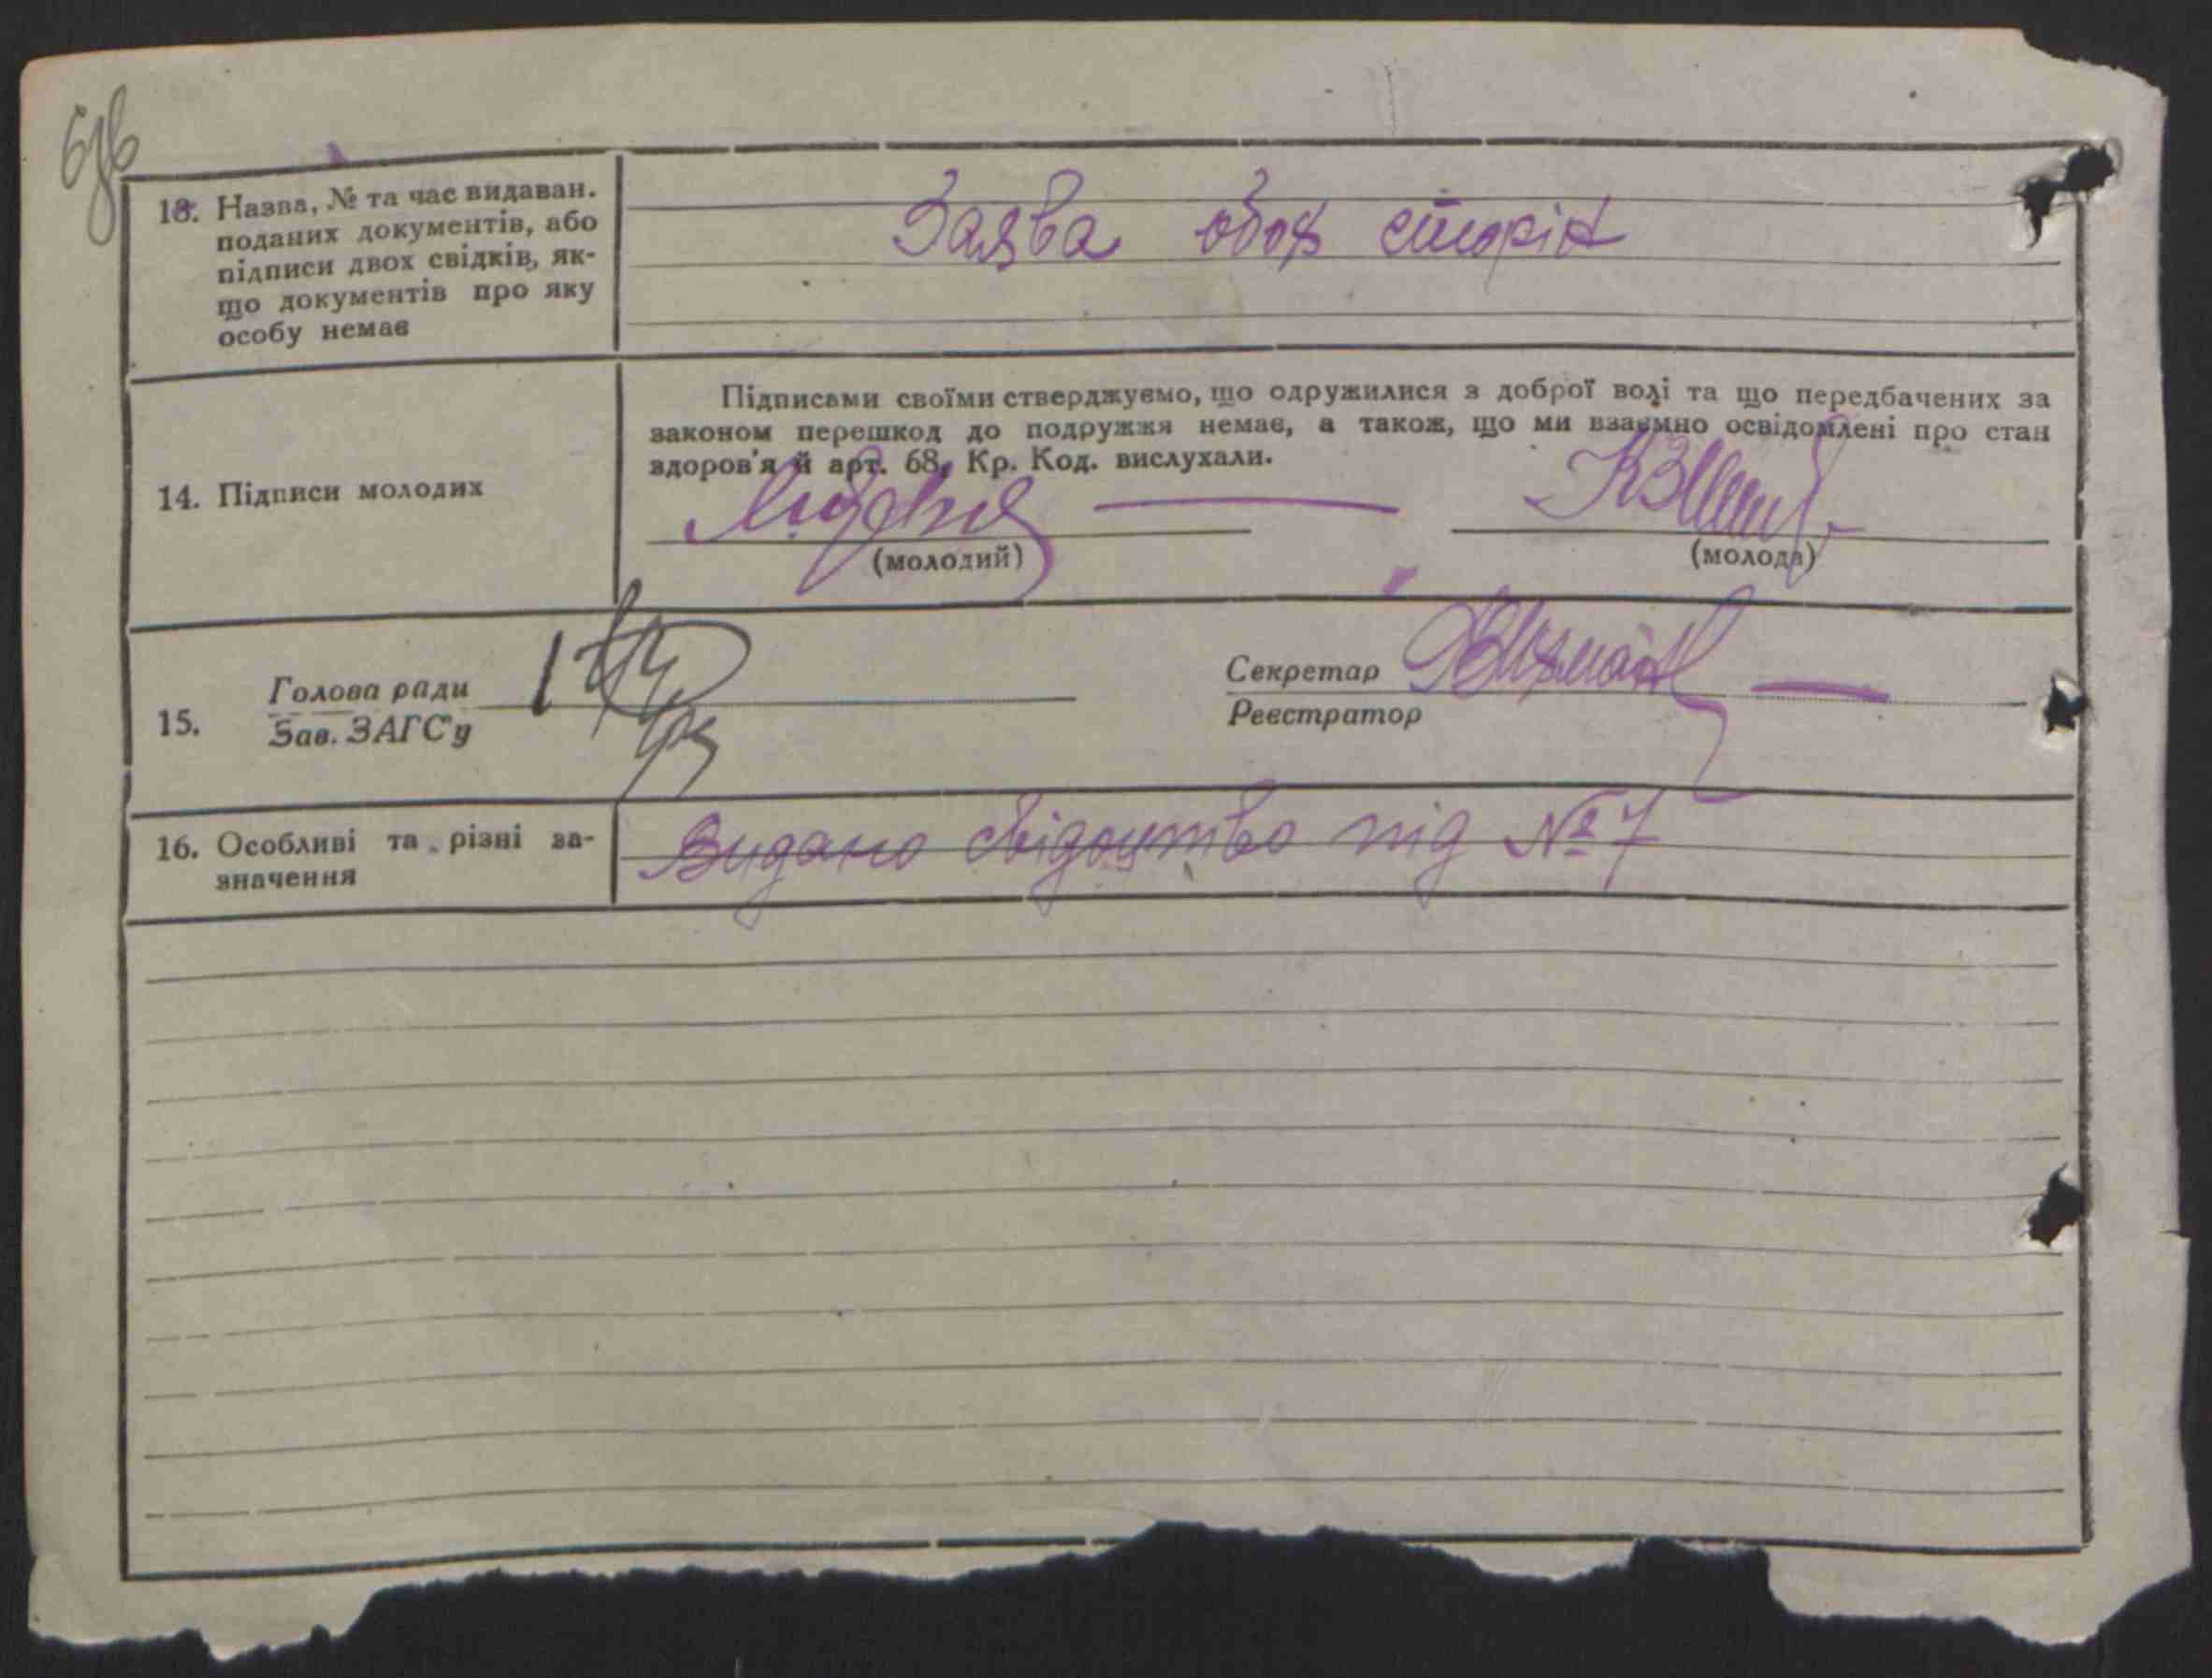 13. Назва, № та час видаван.
поданих документів, або
підписи двох свідків, як-
що документів про яку
особу немає
Заява обох сторін
14. Підписи молодих
Підписами своїми стверджуємо, що одружилися з доброї волі та що передбачених за
законом перешкод до подружжя немає, а також, що ми взаємно освідомлені про стан
здоров'я й арт. 68, Кр. Код. вислухали.
(молодий)
(молода)
15.
Голова ради
Зав. ЗАГС'у
Секретар
Реєстратор
16. Особливі та різні за-
значення
Видано свідоцтво під № 7